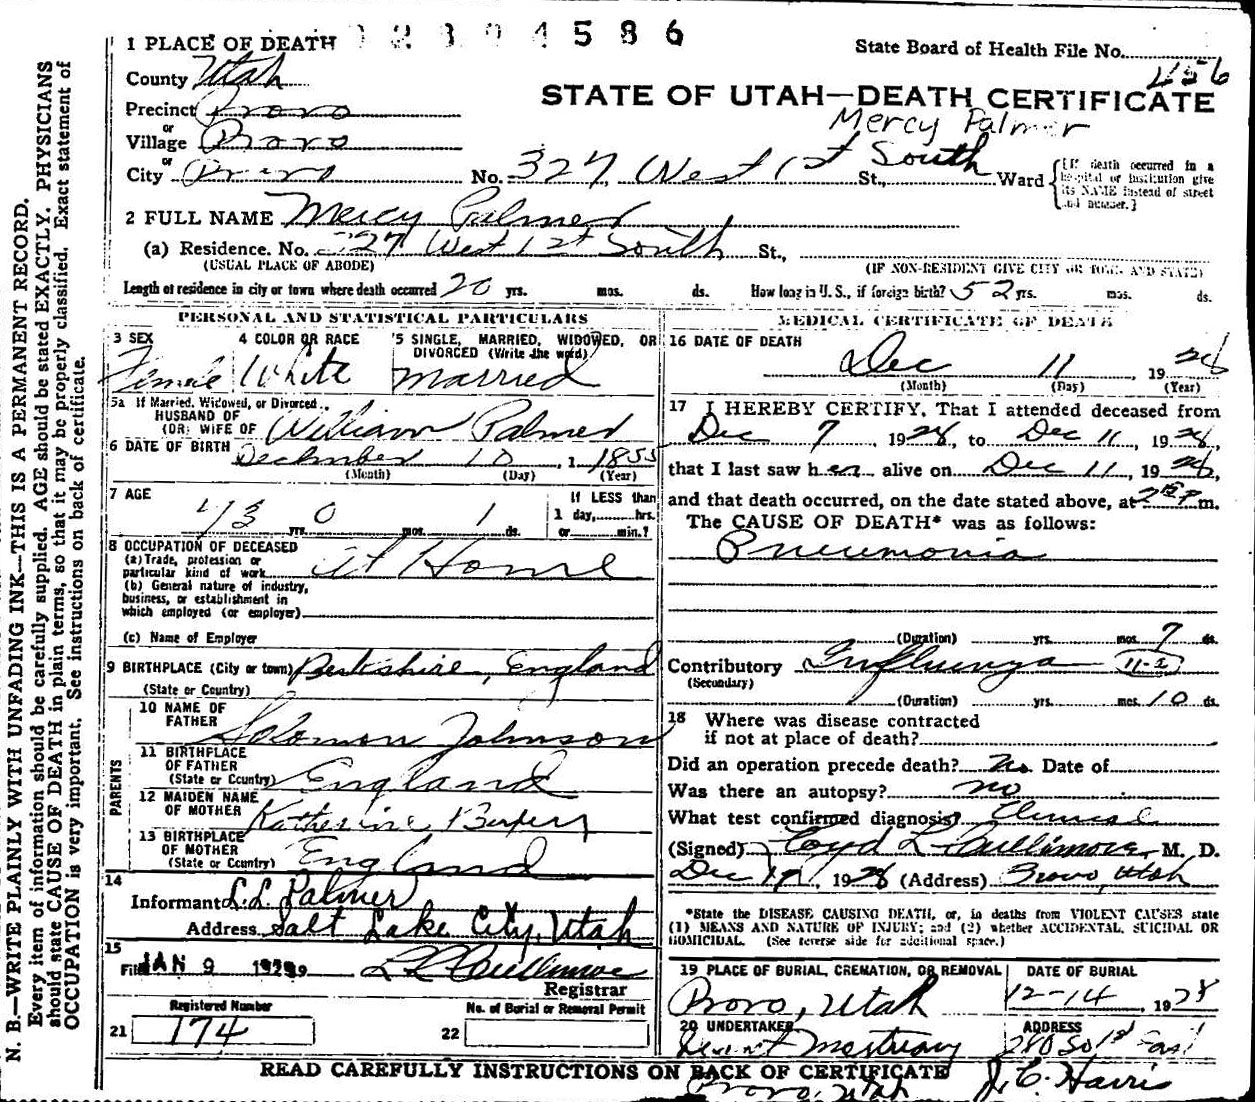 N. B.—WRITE PLAINLY WITH UNFADING INK—THIS IS A PERMANENT RECORD.
Every item of information should be carefully supplied. AGE should be stated EXACTLY. PHYSICIANS
should state CAUSE OF DEATH in plain terms, so that it may be properly classified. Exact statement of
OCCUPATION is very important. See instructions on back of certificate.
1 PLACE OF DEATH
4586
State Board of Health File No.
County Utah
456
STATE OF UTAH—DEATH CERTIFICATE
Precinct Provo
Mercy Palmer
or
Village Provo
or
City Provo No. 327 West 1st South St., Ward
[If death occurred in a hospital or institution give its NAME instead of street and number.]
2 FULL NAME Mercy Palmer
(a) Residence. No. 327 West 1st South St.,
(USUAL PLACE OF ABODE) (IF NON-RESIDENT GIVE CITY OR TOWN AND STATE)
Length of residence in city or town where death occurred 20 yrs. mos. ds. How long in U. S., if foreign birth? 52 yrs. mos. ds.
PERSONAL AND STATISTICAL PARTICULARS
3 SEX 4 COLOR OR RACE 5 SINGLE, MARRIED, WIDOWED, OR
DIVORCED (Write the word)
Female White Married
5a If Married, Widowed, or Divorced
HUSBAND OF
(OR) WIFE OF William Palmer
6 DATE OF BIRTH December 10, 1 1855
(Month) (Day) (Year)
7 AGE If LESS than
73 yrs. 0 mos. 1 ds. 1 day, hrs.
or min.?
8 OCCUPATION OF DECEASED
(a) Trade, profession or
particular kind of work At Home
(b) General nature of industry,
business, or establishment in
which employed (or employer)
(c) Name of Employer
9 BIRTHPLACE (City or town) Berkshire, England
(State or Country)
PARENTS
10 NAME OF
FATHER Solomon Johnson
11 BIRTHPLACE
OF FATHER
(State or Country) England
12 MAIDEN NAME
OF MOTHER Katherine
13 BIRTHPLACE
OF MOTHER
(State or Country) England
14
Informant L.L. Palmer
Address Salt Lake City, Utah
15
Filed JAN 9 1929
L L Cullimore
Registrar
Registered Number No. of Burial or Removal Permit
21 174 22
MEDICAL CERTIFICATE OF DEATH
16 DATE OF DEATH
Dec 11, 1928
(Month) (Day) (Year)
17 I HEREBY CERTIFY, That I attended deceased from
Dec 7, 1928, to Dec 11, 1928,
that I last saw her alive on Dec 11, 1928,
and that death occurred, on the date stated above, at P m.
The CAUSE OF DEATH* was as follows:
Pneumonia
(Duration) yrs. mos. 7 ds.
Contributory Influenza 11-2
(Secondary)
(Duration) yrs. mos. 10 ds.
18 Where was disease contracted
if not at place of death?
Did an operation precede death? No Date of
Was there an autopsy? no
What test confirmed diagnosis? Clinical
(Signed) Loyd L Cullimore, M. D.
Dec, 1928 (Address) Provo, Utah
*State the DISEASE CAUSING DEATH, or, in deaths from VIOLENT CAUSES state
(1) MEANS AND NATURE OF INJURY; and (2) whether ACCIDENTAL, SUICIDAL OR
HOMICIDAL. (See reverse side for additional space.)
19 PLACE OF BURIAL, CREMATION, OR REMOVAL DATE OF BURIAL
Provo, Utah 12-14, 1928
20 UNDERTAKER ADDRESS
Mortuary 280 So 1st East
READ CAREFULLY INSTRUCTIONS ON BACK OF CERTIFICATE
Provo, Utah J. C. Harris